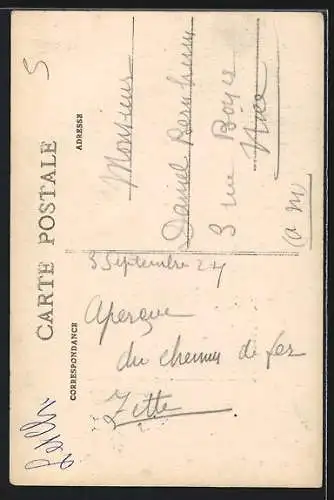 CARTE POSTALE
CORRESPONDANCE
ADRESSE
3 Septembre 24
Aperçue
du chemin de fer
Zette
Monsieur
Daniel Bernheim
3 rue
Nice
(a m)
5